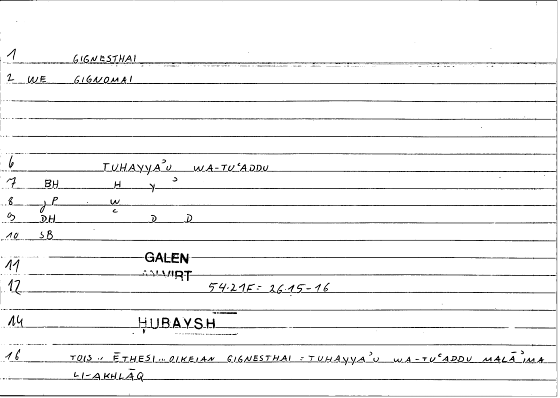 1 GIGNESTHAI
2 WE GIGNOMAI
6 TUHAYYAʾU WA-TUʿADDU
7 BH H Y ʾ
8 JP W
9 DH ʿ D D
10 SB
11 GALEN
12 54.21F = 26.15-16
14 ḤUBAYSH
16 TOIS .. ĒTHESI .. OIKEIAN GIGNESTHAI = TUHAYYAʾU WA-TUʿADDU MALĀʾIMA
LI-AKHLĀQ